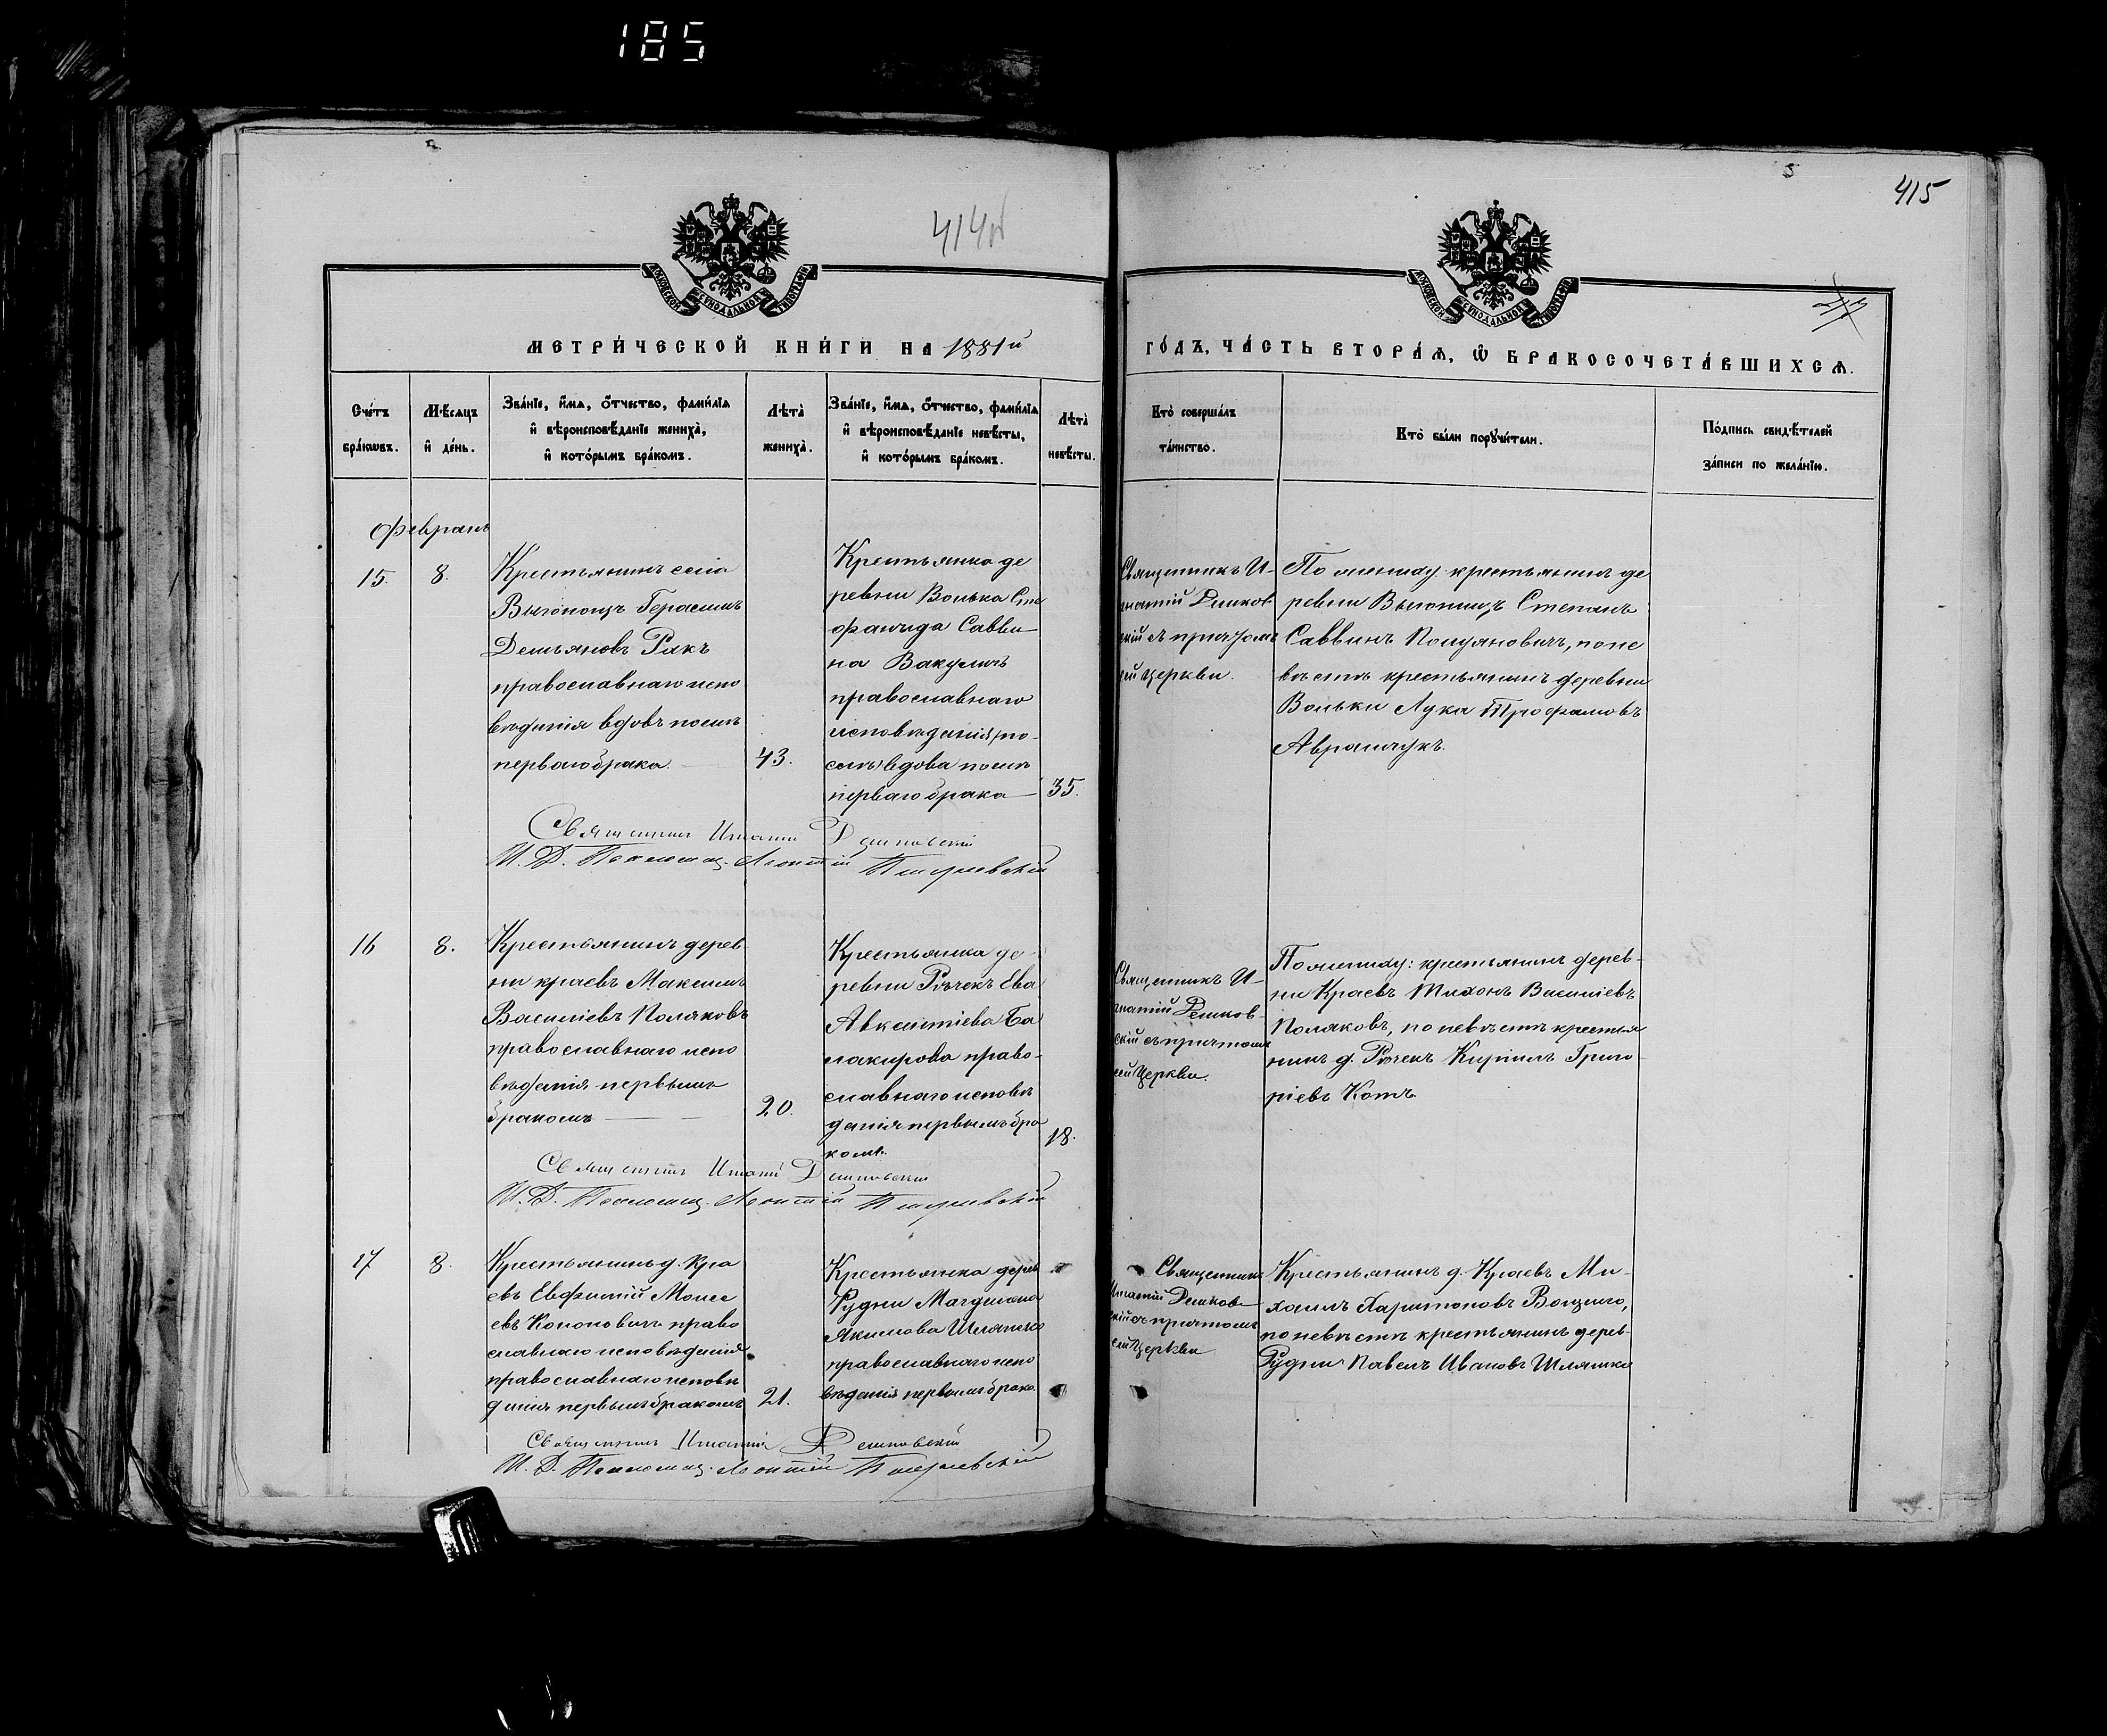 185
414об
415
МОСКОВСКОЙ СѴНОДАЛЬНОЙ ТИПОГРАФІИ
МОСКОВСКОЙ СѴНОДАЛЬНОЙ ТИПОГРАФІИ
МЕТРИ́ЧЕСКОЙ КНИ́ГИ НА 1881й
ГО́ДЪ, ЧА́СТЬ ВТОРА́Ѧ, Ѡ҆ БРАКОСОЧЕТА́ВШИХСѦ.
Сче́тъ
бра́кωвъ.
Мѣ́сѧцъ
и҆ де́нь.
Зва́нїе, и҆́мѧ, ѻ҆́тчество, фами́лїѧ
и҆ вѣроисповѣ́данїе жениха̀,
и҆ кото́рымъ бра́комъ.
Лѣта̀
жениха̀.
Зва́нїе, и҆́мѧ, ѻ҆́тчество, фами́лїѧ
и҆ вѣроисповѣ́данїе невѣ́сты,
и҆ кото́рымъ бра́комъ.
Лѣта̀
невѣ́сты.
Кто̀ соверша́лъ
та́инство.
Кто̀ бы́ли порꙋчи́тели.
По́дпись свидѣ́телей
за́писи по жела́нїю.
Февраль
15.
8.
Крестьянинъ села
Выгонощъ Герасимъ
Демьяновъ Ракъ
православнаго испо
вѣданія вдовъ послѣ
перваго брака.
43.
Крестьянка де
ревни Вольки Сте
фанида Савви
на Вакуличъ
православнаго
исповѣданія, по-
вдова послѣ
перваго брака
35.
Священникъ И-
гнатій
скій съ причтомъ
сей церкви.
По жениху: крестьянинъ де
ревни Выгонощъ Степанъ
Саввинъ Полуяновичъ, по не
вѣстѣ крестьянинъ деревни
Вольки Лука Трофимовъ
Аврамчукъ.
Священникъ Игнатій
И. Д. Псаломщ. Леонтій
16
8.
Крестьянинъ дерев
ни Краевъ Максимъ
Василіевъ Поляковъ
православнаго испо
вѣданія первымъ
бракомъ
20.
Крестьянка де-
ревни Рѣчекъ Ева
Авксентіева Ба
лакирова право-
славнаго исповѣ
данія первымъ бра
комъ.
18.
Священникъ И-
гнатій
скій съ причтомъ
сей церкви.
По жениху: крестьянинъ дерев-
ни Краевъ Тихонъ Василіевъ
Поляковъ, по невѣстѣ крестья
нинъ д. Рѣчекъ Кириллъ Григо-
ріевъ Котъ
Священникъ Игнатій
И. Д. Псаломщ. Леонтій
17
8.
Крестьянинъ д. Кра
евъ Евфимій Моисе
евъ Кононовичъ право
славнаго исповѣданія
православнаго исповѣ
данія первымъ бракомъ
21.
Крестьянка дерев
Рудни Магдалена
Якимова Шляпко
православнаго испо
вѣданія первымъ брако.
Священникъ
Игнатій
скій съ причтомъ
сей церкви
Крестьянинъ д. Краевъ Ми-
хаилъ Харитоновъ
по невѣстѣ крестьянинъ дерев-
Рудни Павелъ Ивановъ Шляпко
Священникъ Игнатій
И. Д. Псаломщ. Леонтій